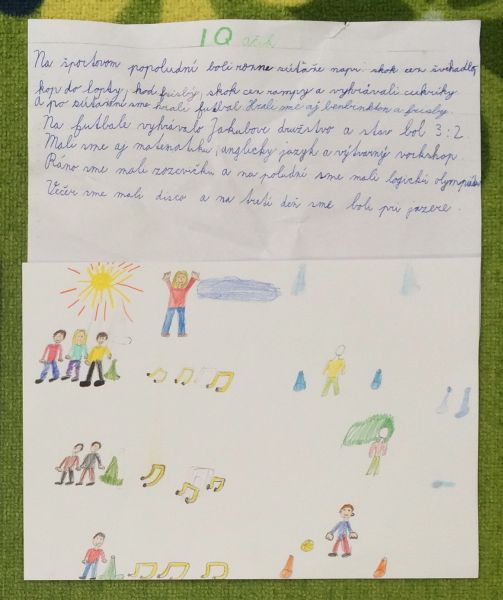 IQ áčik
Na športovom popoludní boli rôzne súťaže napr. skok cez švihadlo,
kop do lopty, hod frisbý, skok cez rampy a vyhrávali cukríky
a po súťažení sme hrali futbal. Hrali sme aj benbinkton a frisby.
Na futbale vyhrávalo Jakubove družstvo a stav bol 3:2.
Mali sme aj matematiku, anglický jazyk a výtvarný vorkshop.
Ráno sme mali rozcvičku a na poludní sme mali logickú olympiádu
Večer sme mali disco a na tretí deň sme boli pri jazere.